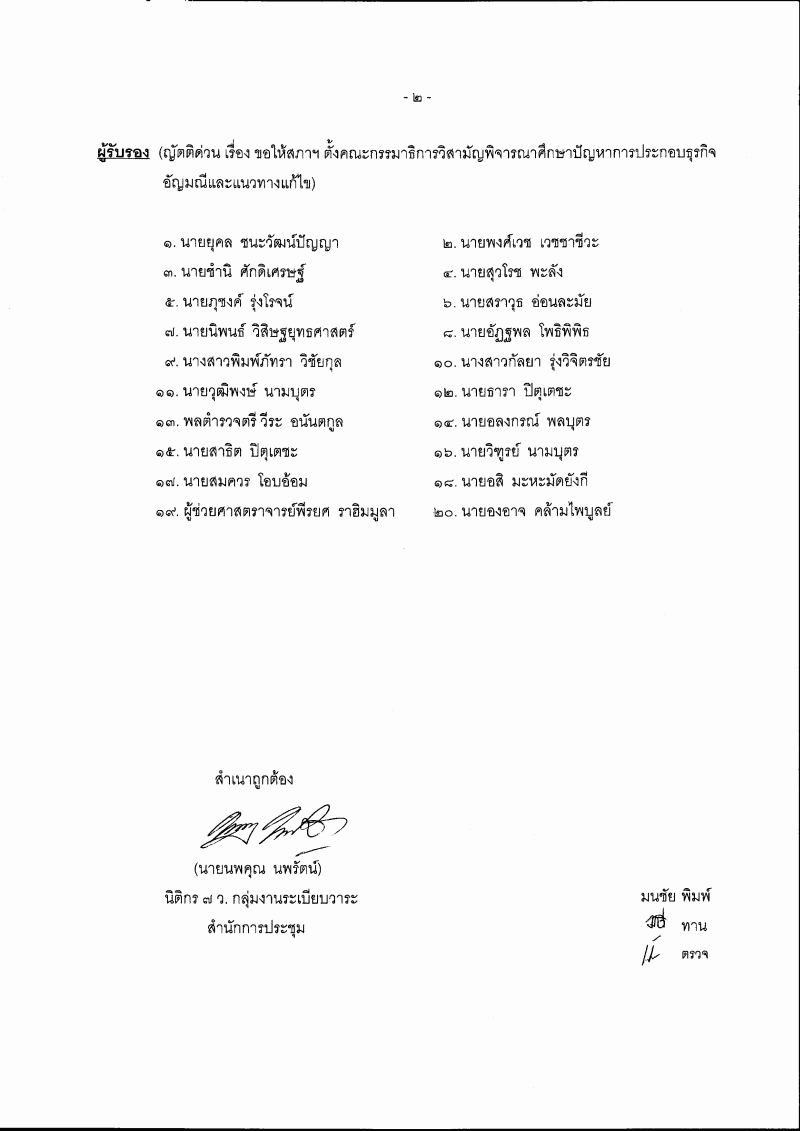 - ๒ -
ผู้รับรอง (ญัตติด่วน เรื่อง ขอให้สภาฯ ตั้งคณะกรรมาธิการวิสามัญพิจารณาศึกษาปัญหาการประกอบธุรกิจ
อัญมณีและแนวทางแก้ไข)
๑. นายยุคล ชนะวัฒน์ปัญญา ๒. นายพงศ์เวช เวชชาชีวะ
๓. นายชำนิ ศักดิเศรษฐ์ ๔. นายสุวโรช พะลัง
๕. นายภุชงค์ รุ่งโรจน์ ๖. นายสราวุธ อ่อนละมัย
๗. นายนิพนธ์ วิสิษฐยุทธศาสตร์ ๘. นายอัฏฐพล โพธิพิพิธ
๙. นางสาวพิมพ์ภัทรา วิชัยกุล ๑๐. นางสาวกัลยา รุ่งวิจิตรชัย
๑๑. นายวุฒิพงษ์ นามบุตร ๑๒. นายธารา ปิตุเตชะ
๑๓. พลตำรวจตรี วีระ อนันตกูล ๑๔. นายอลงกรณ์ พลบุตร
๑๕. นายสาธิต ปิตุเตชะ ๑๖. นายวิฑูรย์ นามบุตร
๑๗. นายสมควร โอบอ้อม ๑๘. นายอสิ มะหะมัดยังกี
๑๙. ผู้ช่วยศาสตราจารย์พีรยศ ราฮิมมูลา ๒๐. นายองอาจ คล้ามไพบูลย์
สำเนาถูกต้อง
(นายนพคุณ นพรัตน์)
นิติกร ๗ ว. กลุ่มงานระเบียบวาระ
สำนักการประชุม
มนชัย พิมพ์
ทาน
ตรวจ